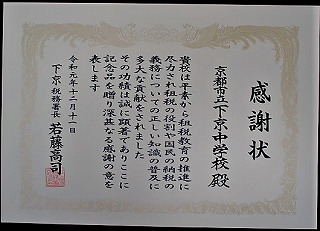 感謝状
京都市立下京中学校殿
貴校は平素から租税教育の推進に
尽力され租税の役割や国民の納税の
義務についての正しい知識の普及に
多大な貢献をされました
その功績は誠に顕著でありここに
記念品を贈り深甚なる感謝の意を
表します
令和元年十二月十一日
下京税務署長 若藤高司